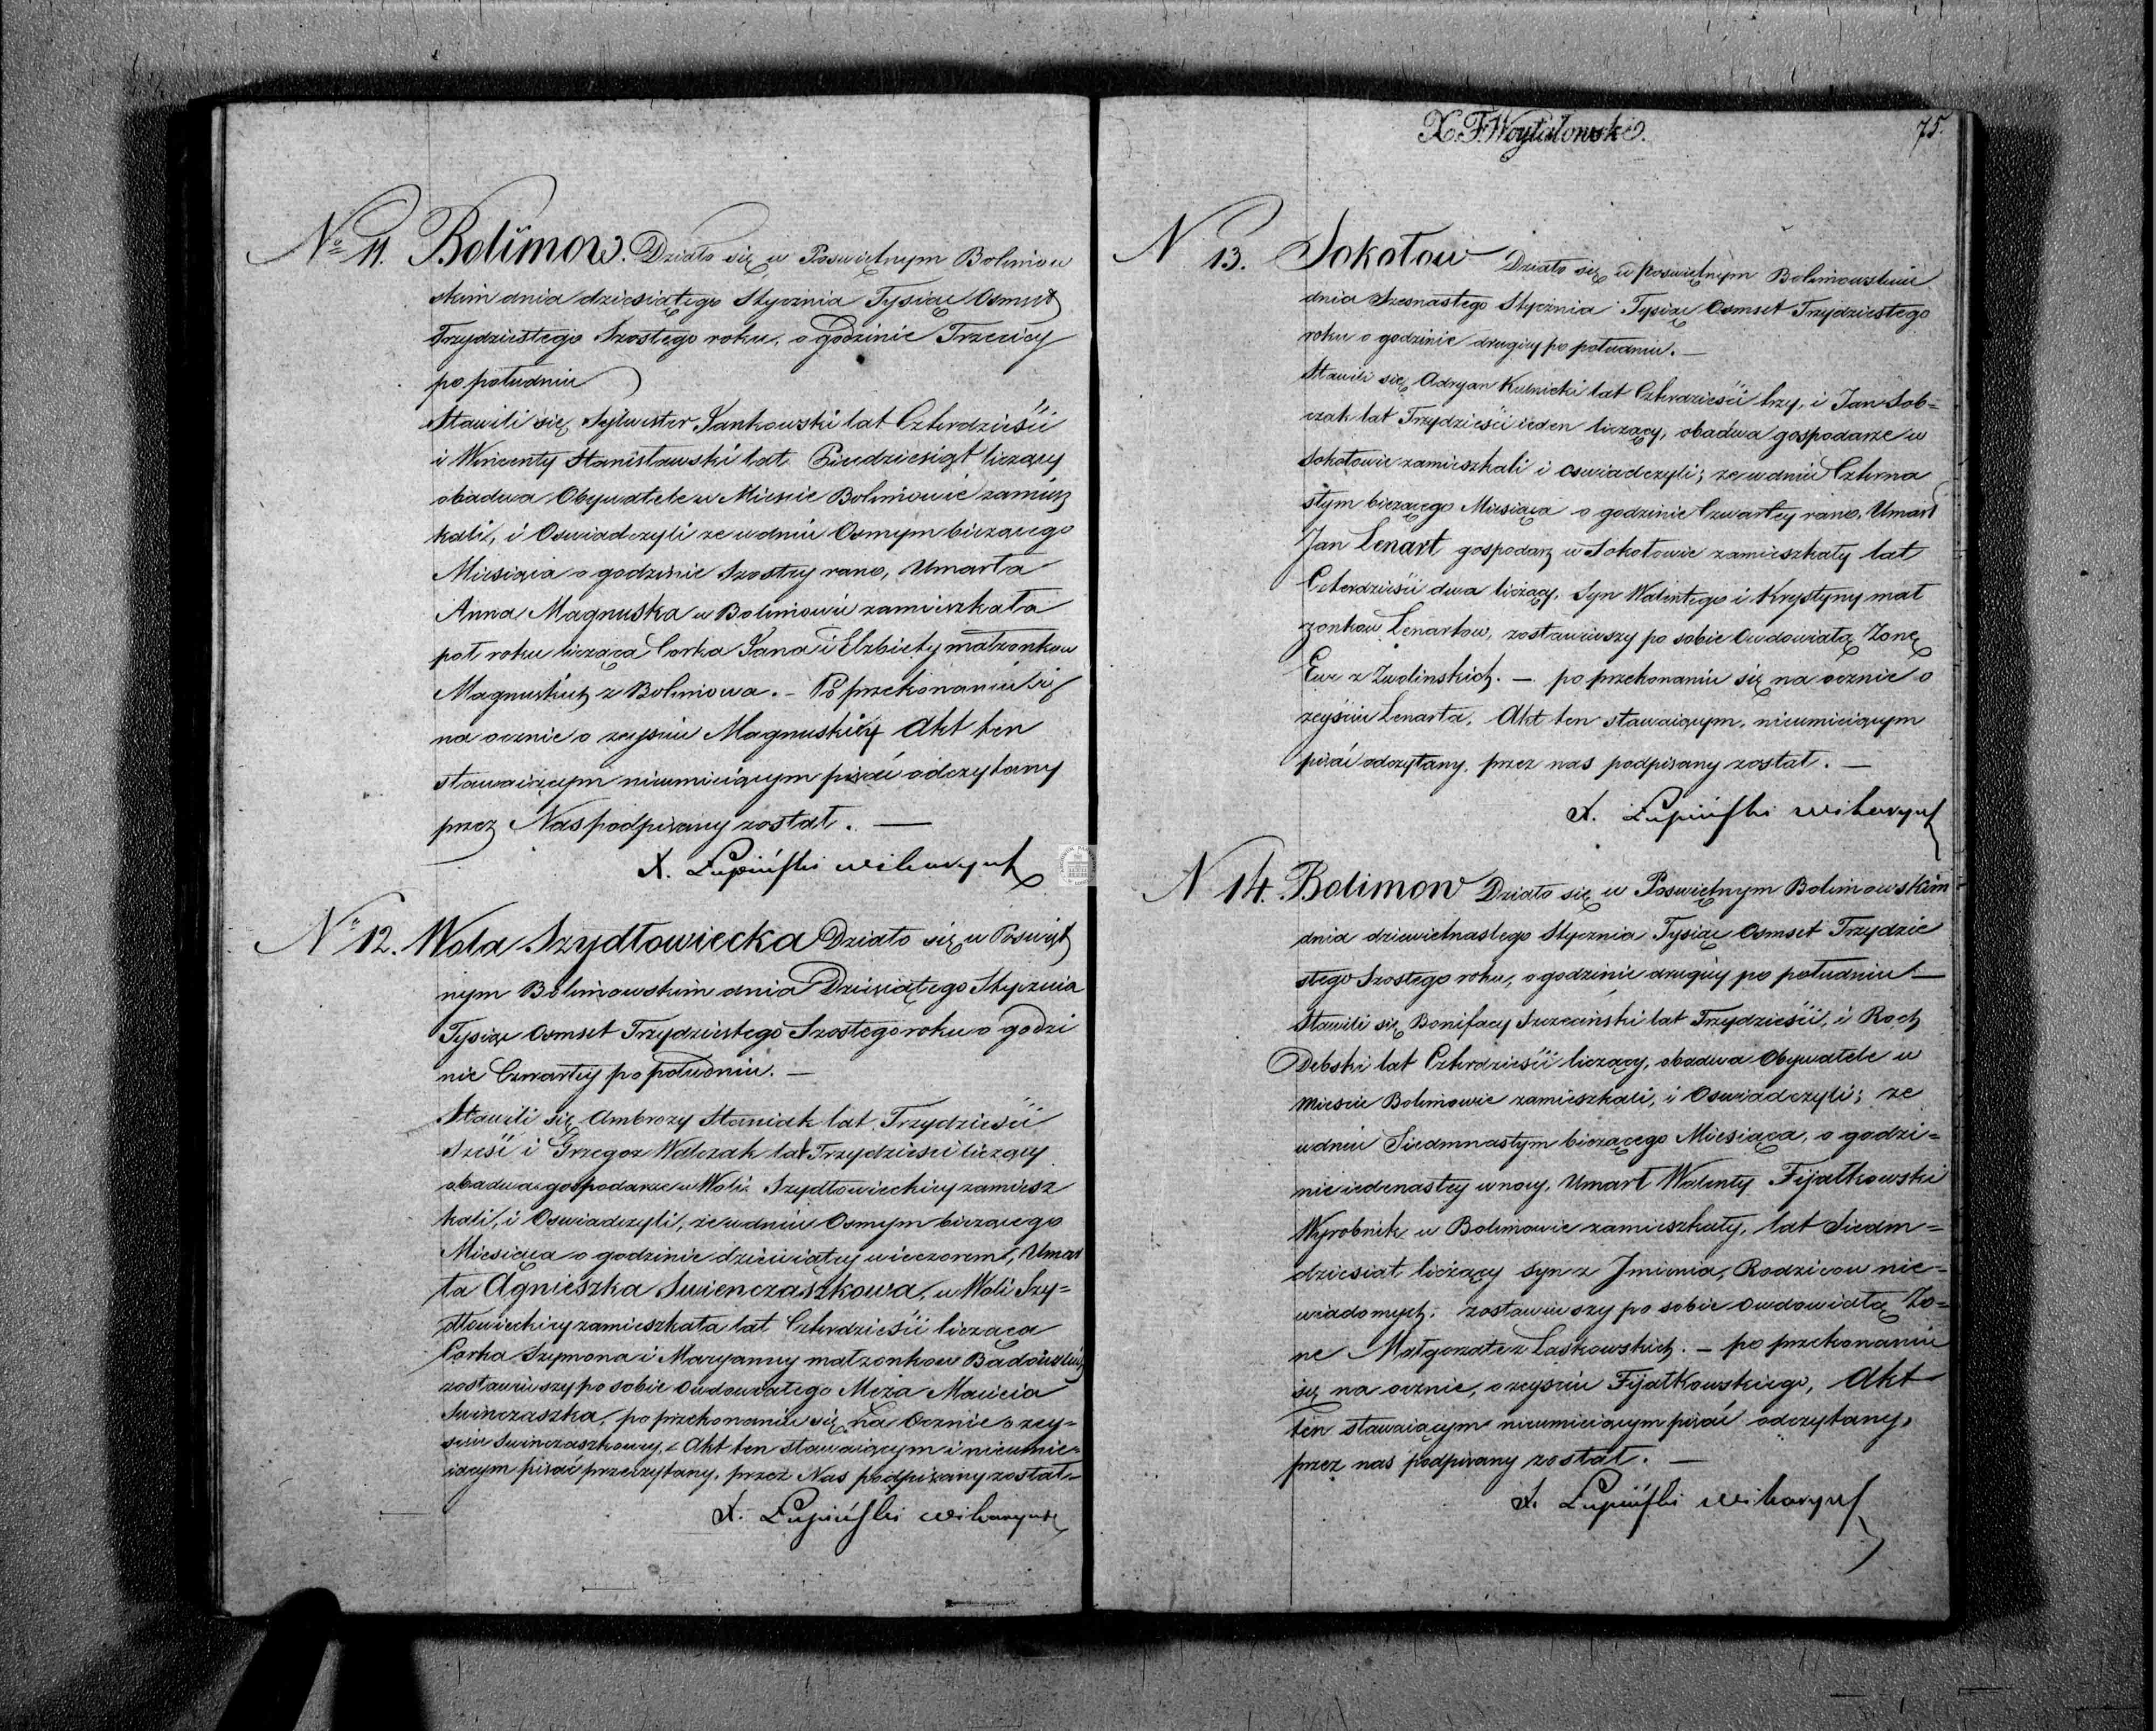 No 11. Bolimow. Działo się w Poswiętnym Bolimow
skim dnia dziesiątego Stycznia Tysiąc Osmset
Trzydziestego Szostego roku, o godzinie Trzeciey
po południu
Stawili się Sylwester Jankowski lat Czterdzieści
i Wincenty Stanisławski lat Piędziesiąt liczący
obadwa Obywatele w Miescie Bolimowie zamiesz
kali, i Oswiadczyli ze w dniu Osmym bieżącego
Miesiąca o godzinie Szostey rano, Umarła
Anna Magnuska w Bolimowie zamieszkała
poł roku licząca Corka Jana i Elzbiety małzonkow
Magnuskich z Bolimowa. – Po przekonaniu się
na ocznie o zeysciu Magnuskiey Akt ten
stawaiącym nieumieiącym pisać odczytany
przez Nas podpisany został. —
X. Łupiński wikaryusz
No 12. Wola Szydłowiecka Działo się w Poswięt
nym Bolimowskim dnia Dziesiątego Stycznia
Tysiąc Osmset Trzydziestego Szostego roku o godzi
nie Czwartey po południu. —
Stawili się Ambrozy Staniak lat Trzydzieści
Sześć i Grzegorz Walczak lat Trzydzieści liczący
obadwa gospodarze w Woli Szydłowieckiey zamiesz
kali, i Oswiadczyli, że w dniu Osmym bieżącego
Miesiąca o godzinie dziewiątey wieczorem, Umar
ła Agnieszka Swienczaszkowa, w Woli Szy=
dłowieckiey zamieszkała lat Czterdzieści licząca
Corka Szymona i Maryanny małzonkow Badowskich
zostawiwszy po sobie owdowiałego Męża Macieia
Swinczaszka, po przekonaniu się na Ocznie o zey=
sciu Swinczaszkowey, Akt ten stawaiącym i nieumie=
iącym pisać przeczytany, przez Nas podpisany został –
X. Łupiński wikaryusz
X. F. Woytulowski. 75.
N 13. Sokołow Działo się w poswiętnym Bolimowskim
dnia Szesnastego Stycznia Tysiąc Osmset Trzydziestego
roku o godzinie drugiey po południu. —
Stawili się Adryan Kuśnicki lat Czterdzieści trzy, i Jan Sob=
czak lat Trzydzieści ieden liczący, obadwa gospodarze w
Sokołowie zamieszkali i oswiadczyli; ze w dniu Czterna
stym bieżącego Miesiąca o godzinie Czwartey rano, Umarł
Jan Lenart gospodarz w Sokołowie zamieszkały lat
Czterdzieści dwa liczący, Syn Walentego i Krystyny mał
zonkow Lenartow, zostawiwszy po sobie Owdowiałą Zonę
Ewę z Zwolinskich. — po przekonaniu się na ocznie o
zeyściu Lenarta, Akt ten stawaiącym, nieumieiącym
pisać odczytany, przez nas podpisany został. —
X. Łupiński wikaryusz
N 14. Bolimow Działo się w Poswiętnym Bolimowskim
dnia dziewietnastego Stycznia Tysiąc Osmset Trzydzie
stego Szostego roku, o godzinie drugiey po południu —
Stawili się Bonifacy Szczecinski lat Trzydzieści, i Roch
Debski lat Czterdzieści liczący, obadwa Obywatele w
miescie Bolimowie zamieszkali, i Oswiadczyli; ze
w dniu Siedmnastym bieżącego Miesiąca, o godzi=
nie iedenastey w nocy, Umarł Walenty Fijałkowski
Wyrobnik w Bolimowie zamieszkały, lat Siedm=
dziesiat liczący syn z Jmienia, Rodzicow nie=
wiadomych; zostawiwszy po sobie owdowiałą Zo=
ne Małgorzate z Laskowskich. — po przekonaniu
się na ocznie, o zeysciu Fijałkowskiego, Akt
ten stawaiącym nieumieiącym pisać odczytany,
przez nas podpisany został. —
X. Łupiński wikaryusz